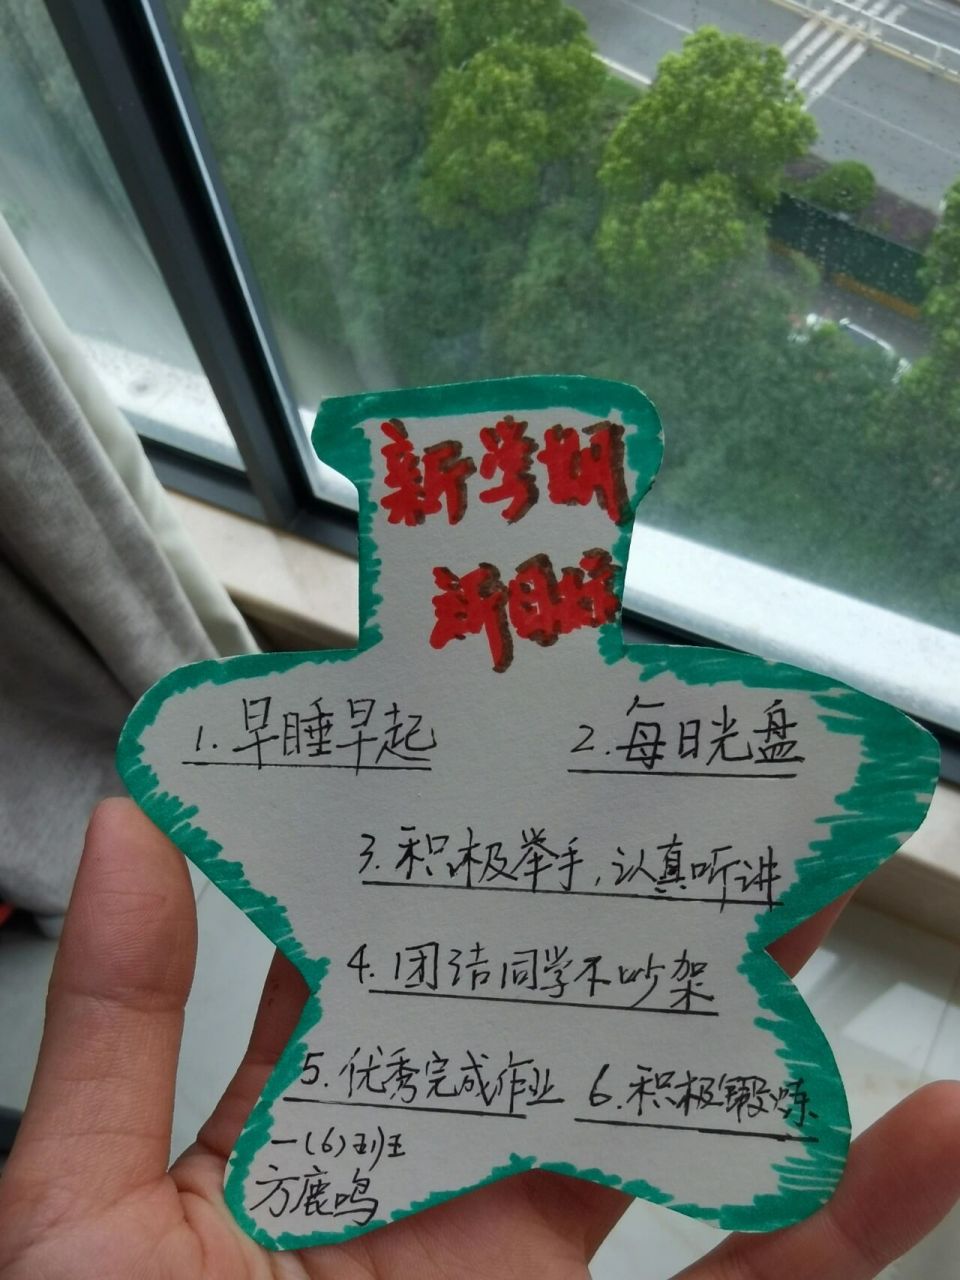 新学期
新目标
1.早睡早起
2.每日光盘
3.积极举手,认真听讲
4.团洁同学不吵架
5.优秀完成作业
6.积极锻炼
一(6)班
方鹿鸣